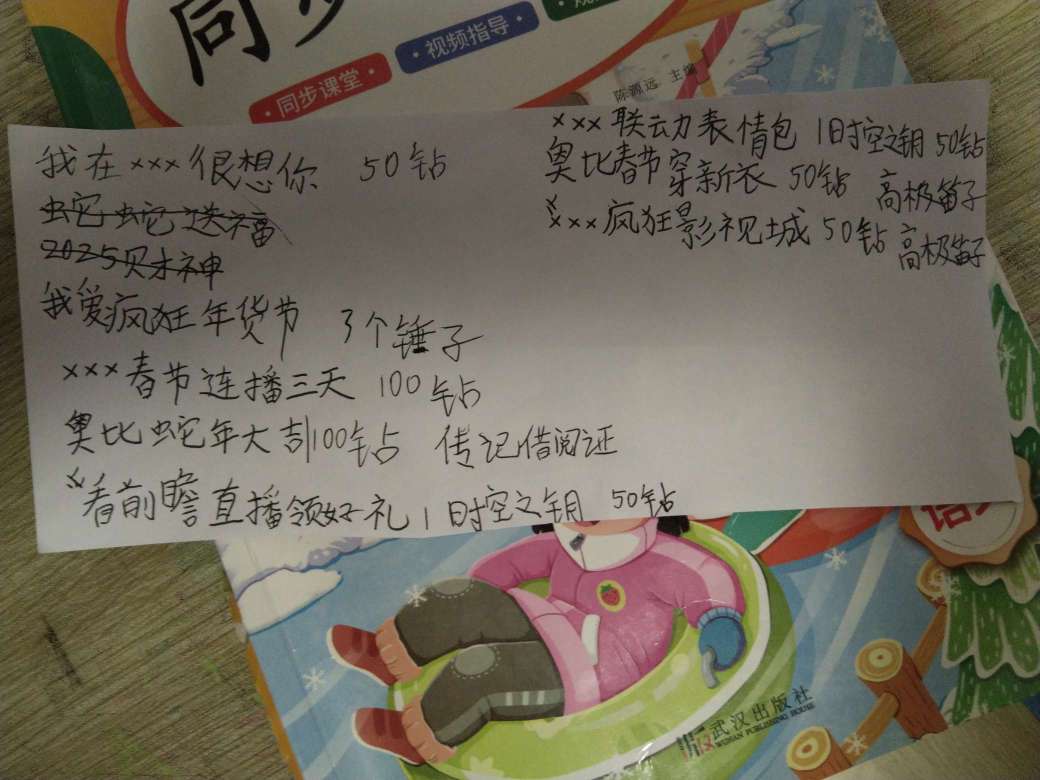 同步
同步课堂
视频指导
陈源远 主编
我在×××很想你 50钻
蛇蛇送福
2025财神
我爱疯狂年货节 3个锤子
×××春节连播三天 100钻
奥比蛇年大吉100钻 传记借阅证
看前瞻直播领好礼 1时空之钥 50钻
×××联动表情包 1时空之钥 50钻
奥比春节穿新衣 50钻 高极笛子
×××疯狂影视城 50钻 高极笛子
武汉出版社
WUHAN PUBLISHING HOUSE